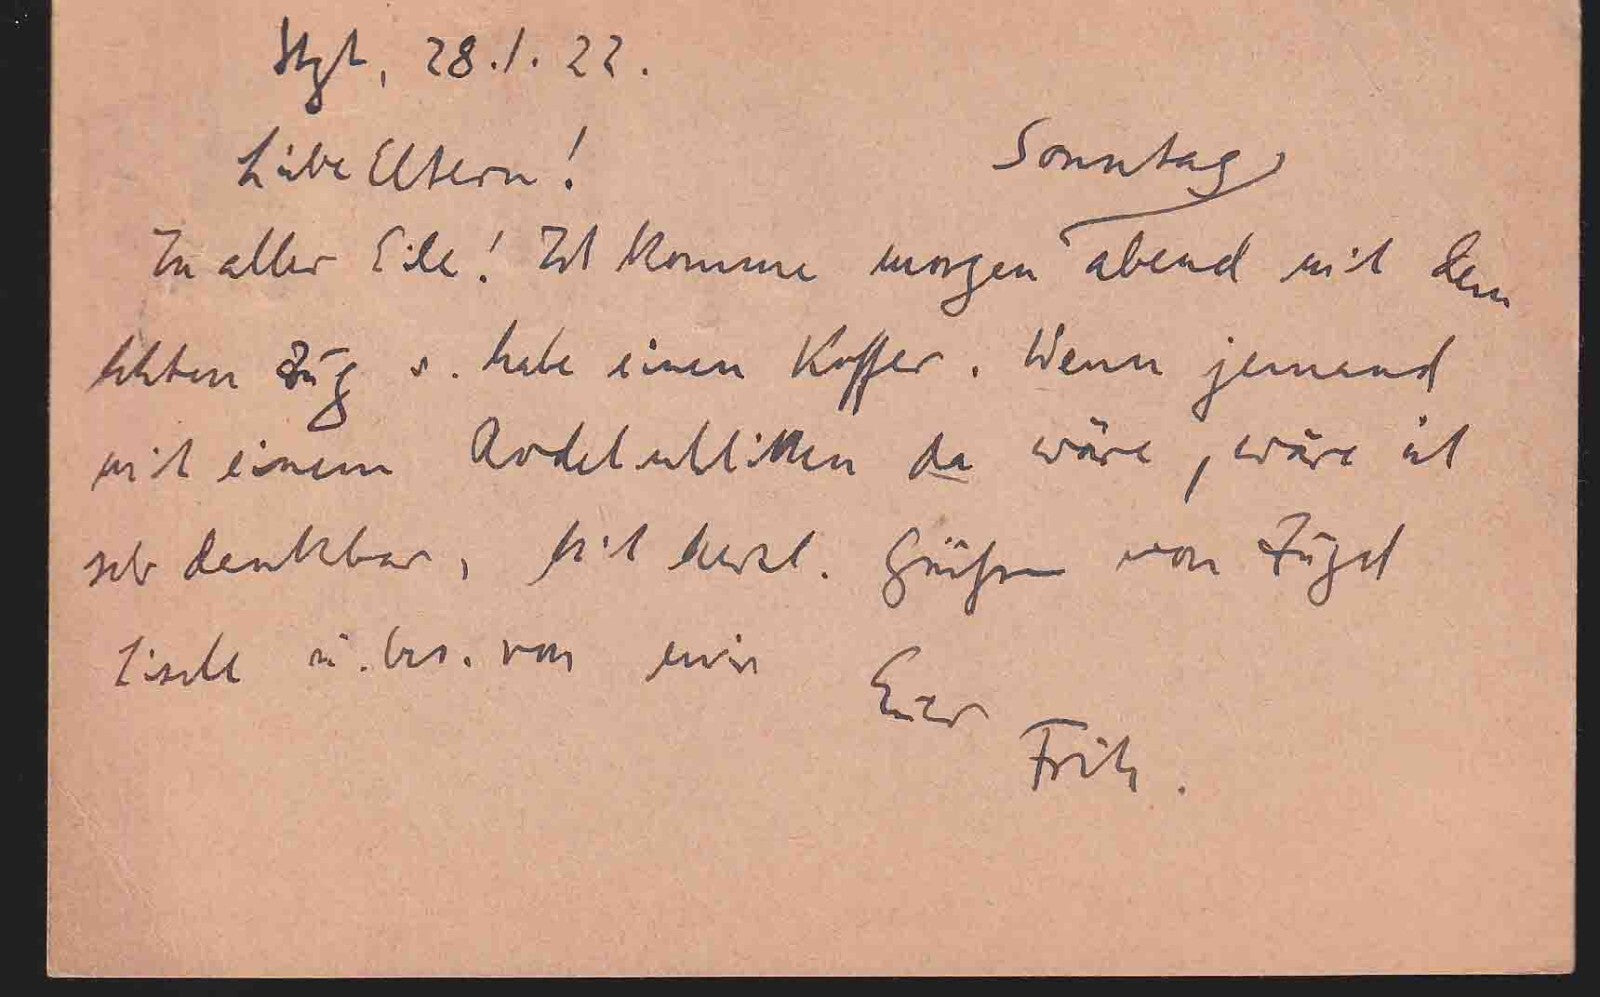 Stgt, 28.1.22.
Liebe Eltern!
Sonntag
In aller Eile! Ich komme morgen abend mit dem
letzten Zug u. habe einen Koffer. Wenn jemand
mit einem Rodelschlitten da wäre, wäre ich
sehr dankbar, Mit herzl. Grüßen von
Liselt u. bes. von mir
Euer
Fritz.